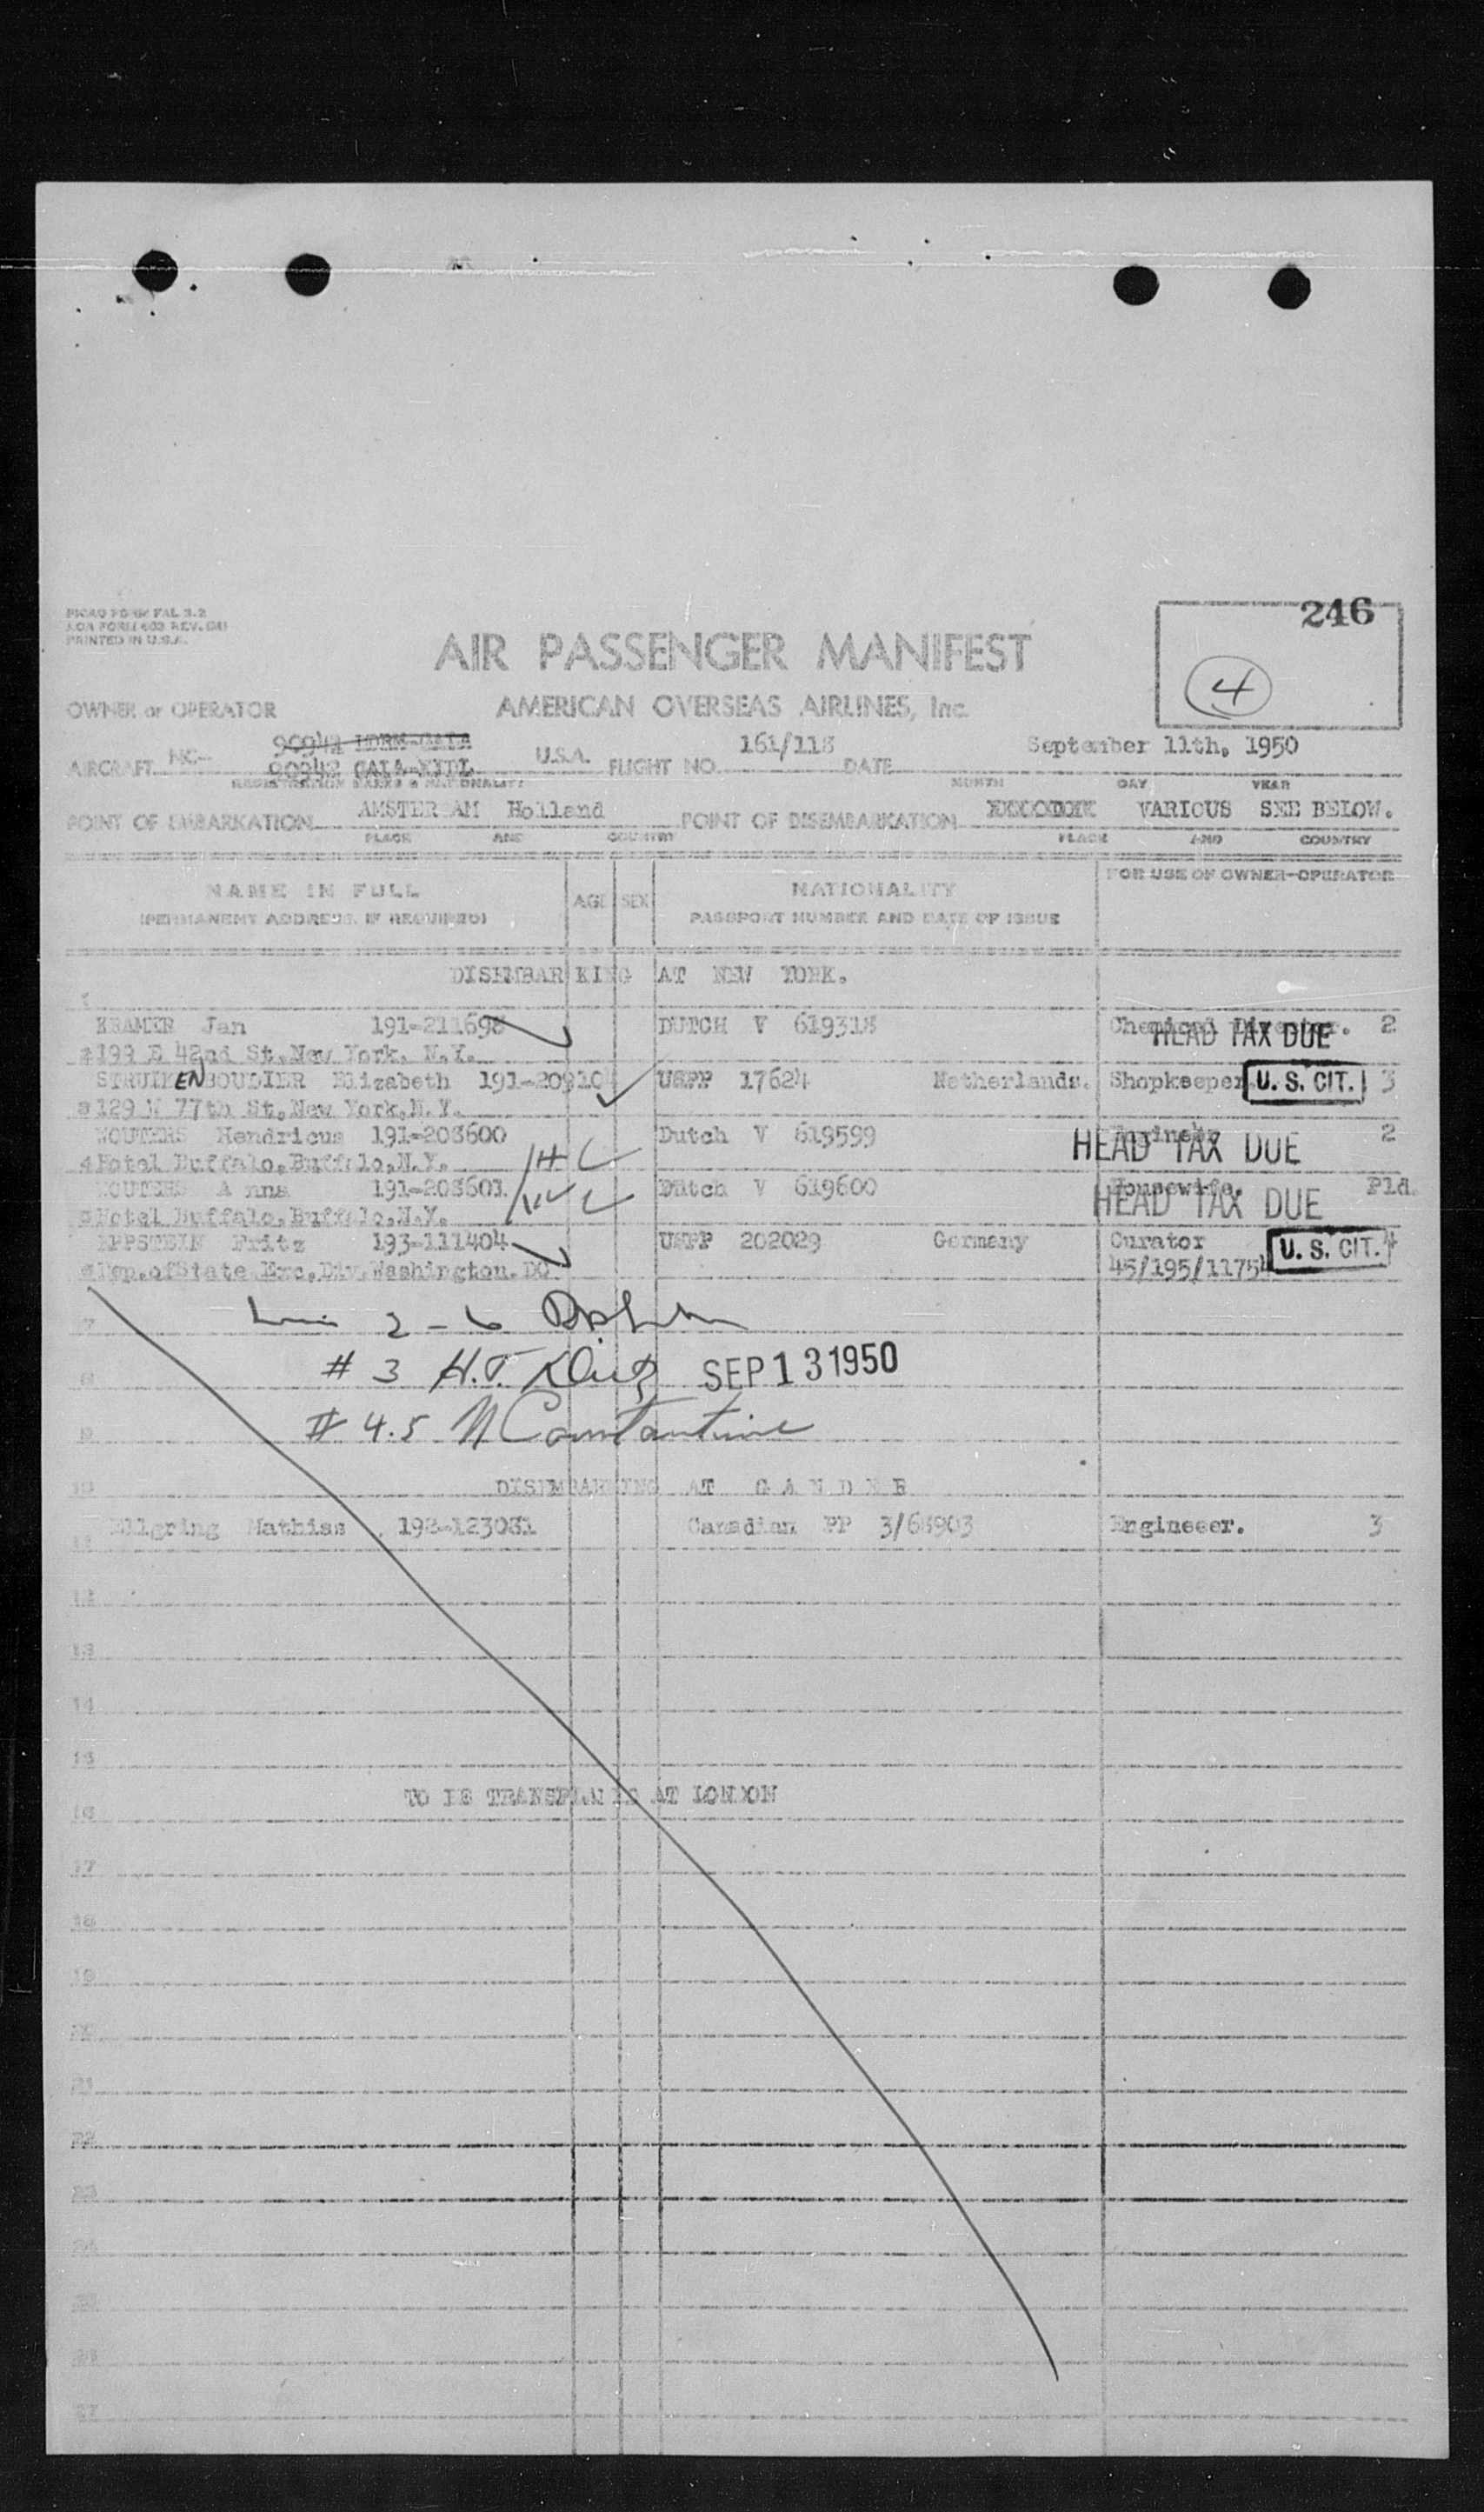 PRINTED IN U.S.A.
246
AIR PASSENGER MANIFEST
4
OWNER or OPERATOR AMERICAN OVERSEAS AIRLINES, Inc.
AIRCRAFT NC- 90942 U.S.A. FLIGHT NO. 161/118 DATE September 11th, 1950
REGISTRATION MARKS & NATIONALITY MONTH DAY YEAR
POINT OF EMBARKATION AMSTERDAM Holland POINT OF DISEMBARKATION VARIOUS SEE BELOW.
PLACE AND COUNTRY PLACE AND COUNTRY
NAME IN FULL AGE SEX NATIONALITY FOR USE OF OWNER-OPERATOR
(PERMANENT ADDRESS, IF REQUIRED) PASSPORT NUMBER AND DATE OF ISSUE
DISEMBARKING AT NEW YORK.
1
KRAMER Jan 191-211698 DUTCH V 619318 Chemical Director. 2
HEAD TAX DUE
199 E 42nd St.New York. N.Y.
STRUIKENBOUDIER Elizabeth 191-20910 USPP 17624 Netherlands. Shopkeeper U. S. CIT. 3
129 W 77th St.New York.N.Y.
WOUTERS Hendricus 191-208600 Dutch V 619599 Engineer 2
HEAD TAX DUE
Hotel Buffalo.Buffalo.N.Y.
WOUTERS Anna 191-208601 Dutch V 619600 Housewife. Pld.
HEAD TAX DUE
Hotel Buffalo.Buffalo.N.Y.
EPPSTEIN Fritz 193-111404 USPP 202029 Germany Curator U. S. CIT. 4
Dep.ofState Exc.Div.Washington.DC 45/195/11754
7 2-6
8 # 3 H.T. SEP 13 1950
9 # 4.5 N Constantine
10 DISEMBARKING AT GANDER
11 Ellgring Mathias 192-123031 Canadian PP 3/68903 Engineeer. 3
12
13
14
15
TO BE TRANSPLANED AT LONDON
16
17
18
19
20
21
22
23
24
25
26
27